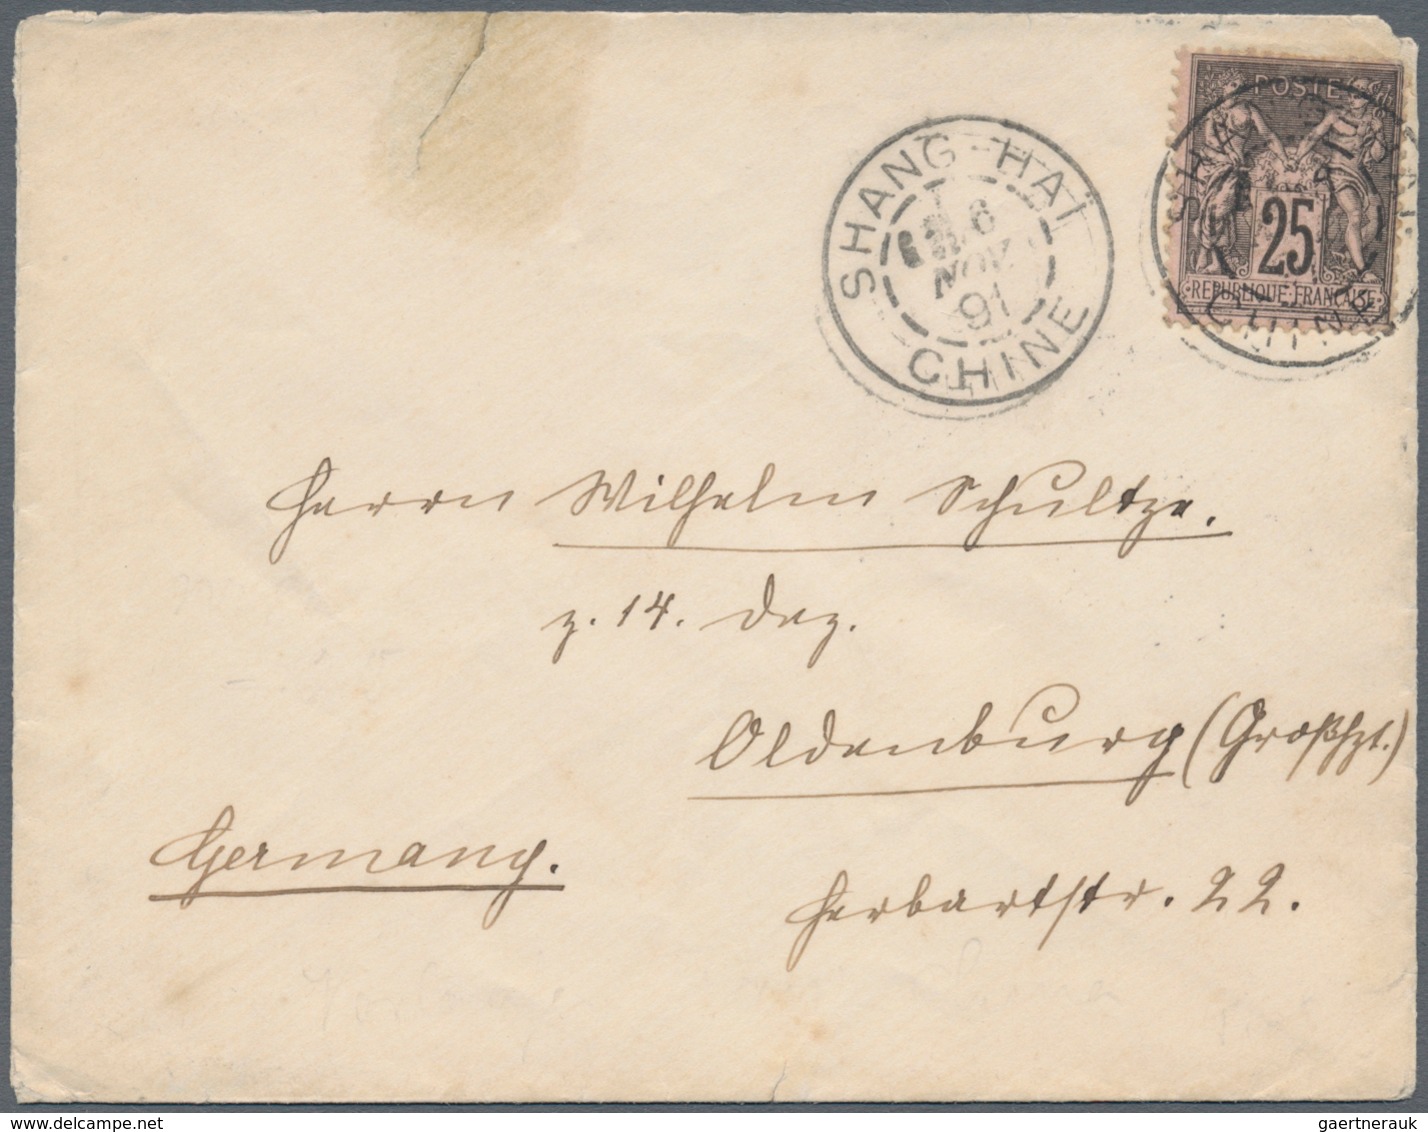 POSTE
25
REPUBLIQUE FRANCAISE
SHANG-HAÏ
6
NOV
91
CHINE
SHANG-HAÏ
CHINE
Herrn Wilhelm Schultze.
z. 14. Dez.
Oldenburg (Großhzt.)
Germany.
Herbartstr. 22.
www.delcampe.net
gaertnerauk